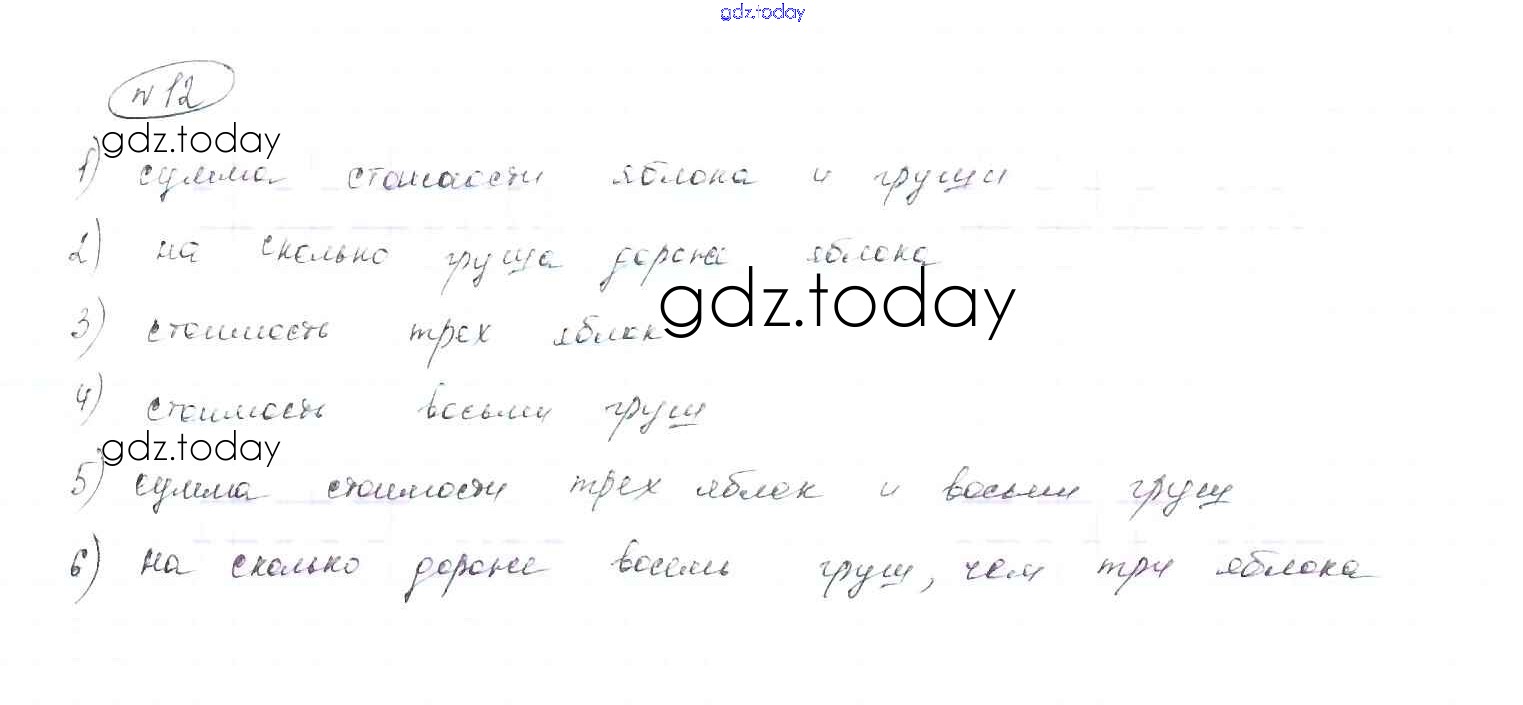 gdz.today
№ 12
gdz.today
1) сумма стоимости яблока и груши
2) на сколько груша дороже яблока
gdz.today
3) стоимость трех яблок
4) стоимость восьми груш
gdz.today
5) сумма стоимости трех яблок и восьми груш
6) на сколько дороже восемь груш, чем три яблока